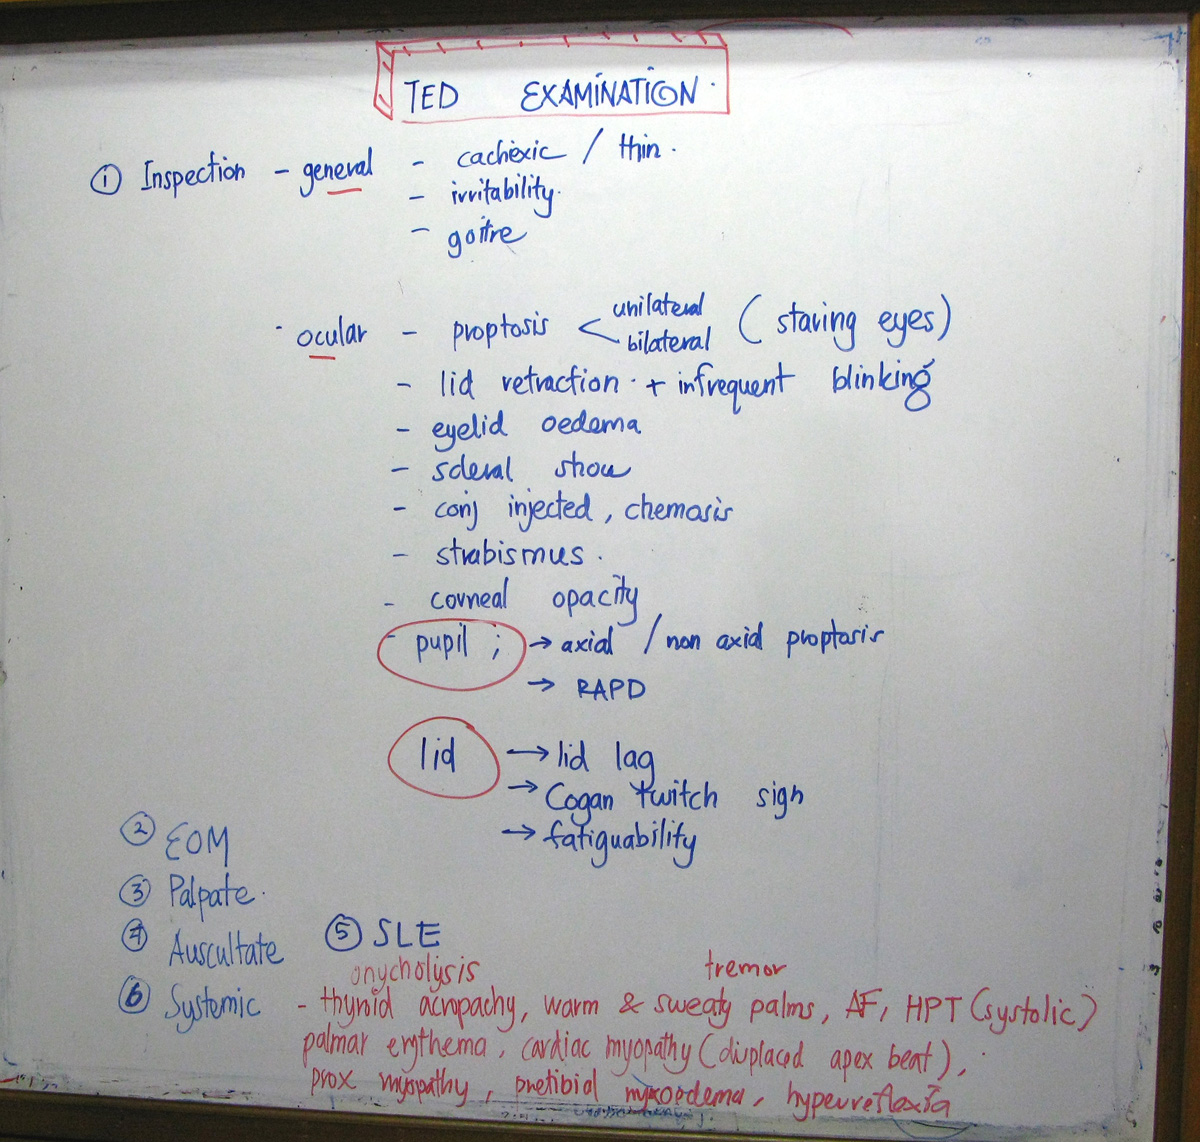 TED EXAMINATION.
① Inspection - general - cachexic / thin.
- irritability.
- goitre
ocular - proptosis < unilateral bilateral (staring eyes)
- lid retraction + infrequent blinking
- eyelid oedema
- scleral show
- conj injected, chemosis
- strabismus.
- corneal opacity
- pupil ; → axial / non axial proptosis
→ RAPD
lid → lid lag
→ Cogan twitch sign
→ fatiguability
② EOM
③ Palpate.
④ Auscultate
⑤ SLE
onycholysis tremor
⑥ Systemic - thyroid acropachy, warm & sweaty palms, AF, HPT (systolic)
palmar erythema, cardiac myopathy (displaced apex beat),
prox myopathy, pretibial myxoedema, hyperreflexia